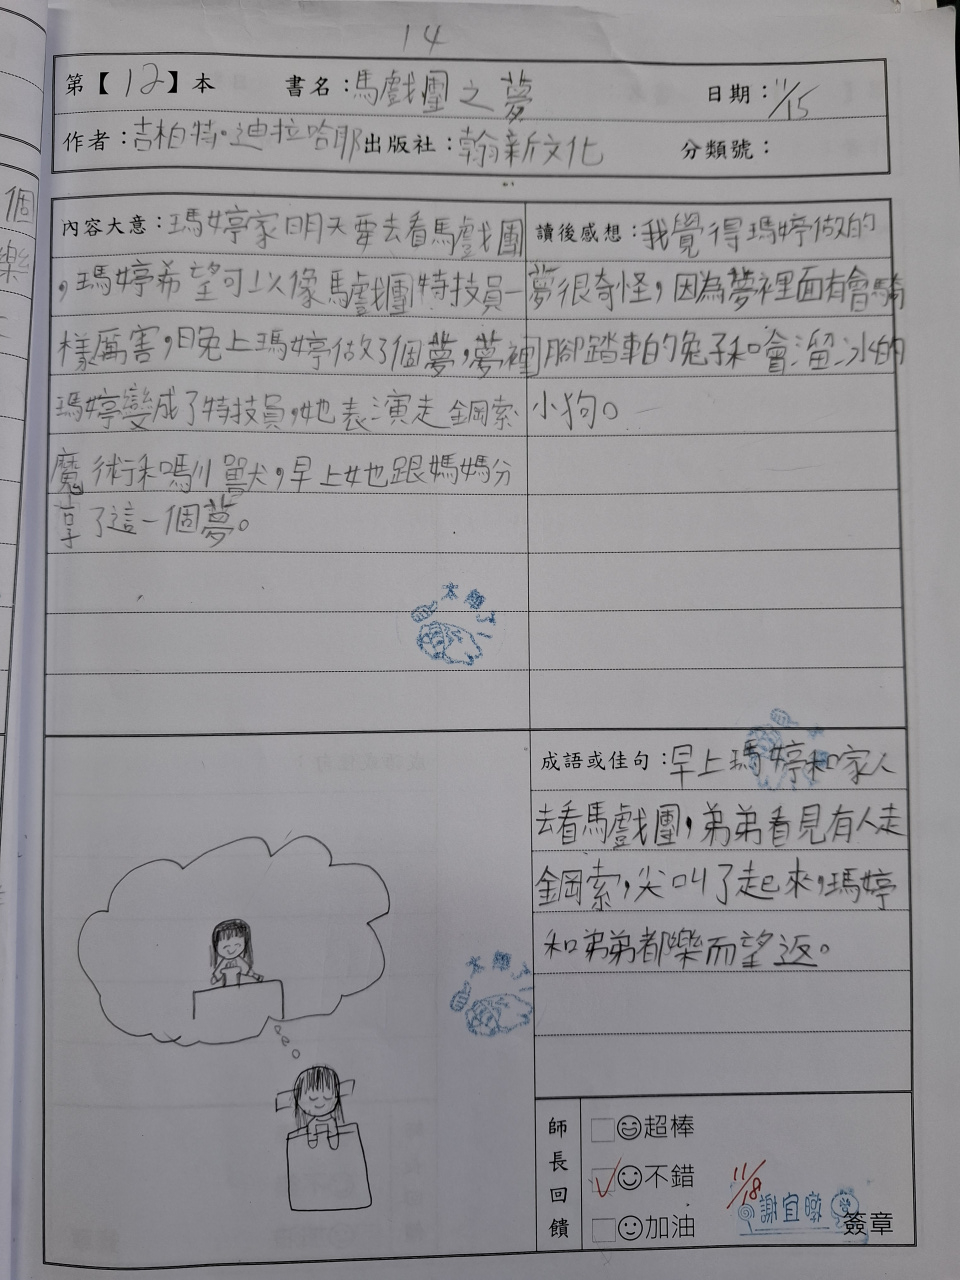 14
第【12】本 書名：馬戲團之夢 日期：11/15
作者：吉柏特．迪拉哈耶 出版社：翰新文化 分類號：
內容大意：瑪婷家明天要去看馬戲團
，瑪婷希望可以像馬戲團特技員一
樣厲害，晚上瑪婷做了個夢，夢裡
瑪婷變成了特技員，她表演走鋼索
魔術和馴獸，早上她跟媽媽分
享了這一個夢。
讀後感想：我覺得瑪婷做的
夢很奇怪，因為夢裡面有會騎
腳踏車的兔子和會溜冰的
小狗。
成語或佳句：早上瑪婷和家人
去看馬戲團，弟弟看見有人走
鋼索，尖叫了起來，瑪婷
和弟弟都樂而望返。
師長回饋
超棒
不錯
加油
11/18
謝宜
簽章
個
樂